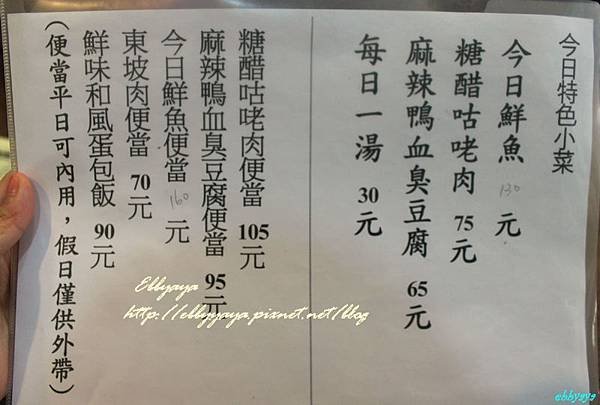 今日特色小菜
今日鮮魚 130 元
糖醋咕咾肉 75 元
麻辣鴨血臭豆腐 65 元
每日一湯 30 元
糖醋咕咾肉便當 105 元
麻辣鴨血臭豆腐便當 95 元
今日鮮魚便當 160 元
東坡肉便當 70 元
鮮味和風蛋包飯 90 元
(便當平日可內用，假日僅供外帶)
Ebbyaya
http://ebbyyaya.pixnet.net/blog
ebbyaya